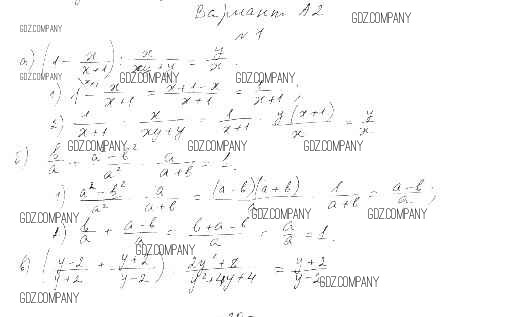 Вариант А2
GDZ.COMPANY
GDZ.COMPANY
№1
а) (1 - x/(x+1)) : x/(xy+y) = y/x.
GDZ.COMPANY GDZ.COMPANY GDZ.COMPANY
1) 1 - x/(x+1) = (x+1-x)/(x+1) = 1/(x+1);
2) 1/(x+1) : x/(xy+y) = 1/(x+1) · y(x+1)/x = y/x
GDZ.COMPANY GDZ.COMPANY GDZ.COMPANY
б) b/a + (a²-b²)/a² · a/(a+b) = 1.
1) (a²-b²)/a² · a/(a+b) = (a-b)(a+b)/a · 1/(a+b) = (a-b)/a;
GDZ.COMPANY GDZ.COMPANY GDZ.COMPANY
2) b/a + (a-b)/a = (b+a-b)/a = a/a = 1.
GDZ.COMPANY
в) ((y-2)/(y+2) + (y+2)/(y-2)) : (2y²+8)/(y²+4y+4) = (y+2)/(y-2)
GDZ.COMPANY
GDZ.COMPANY